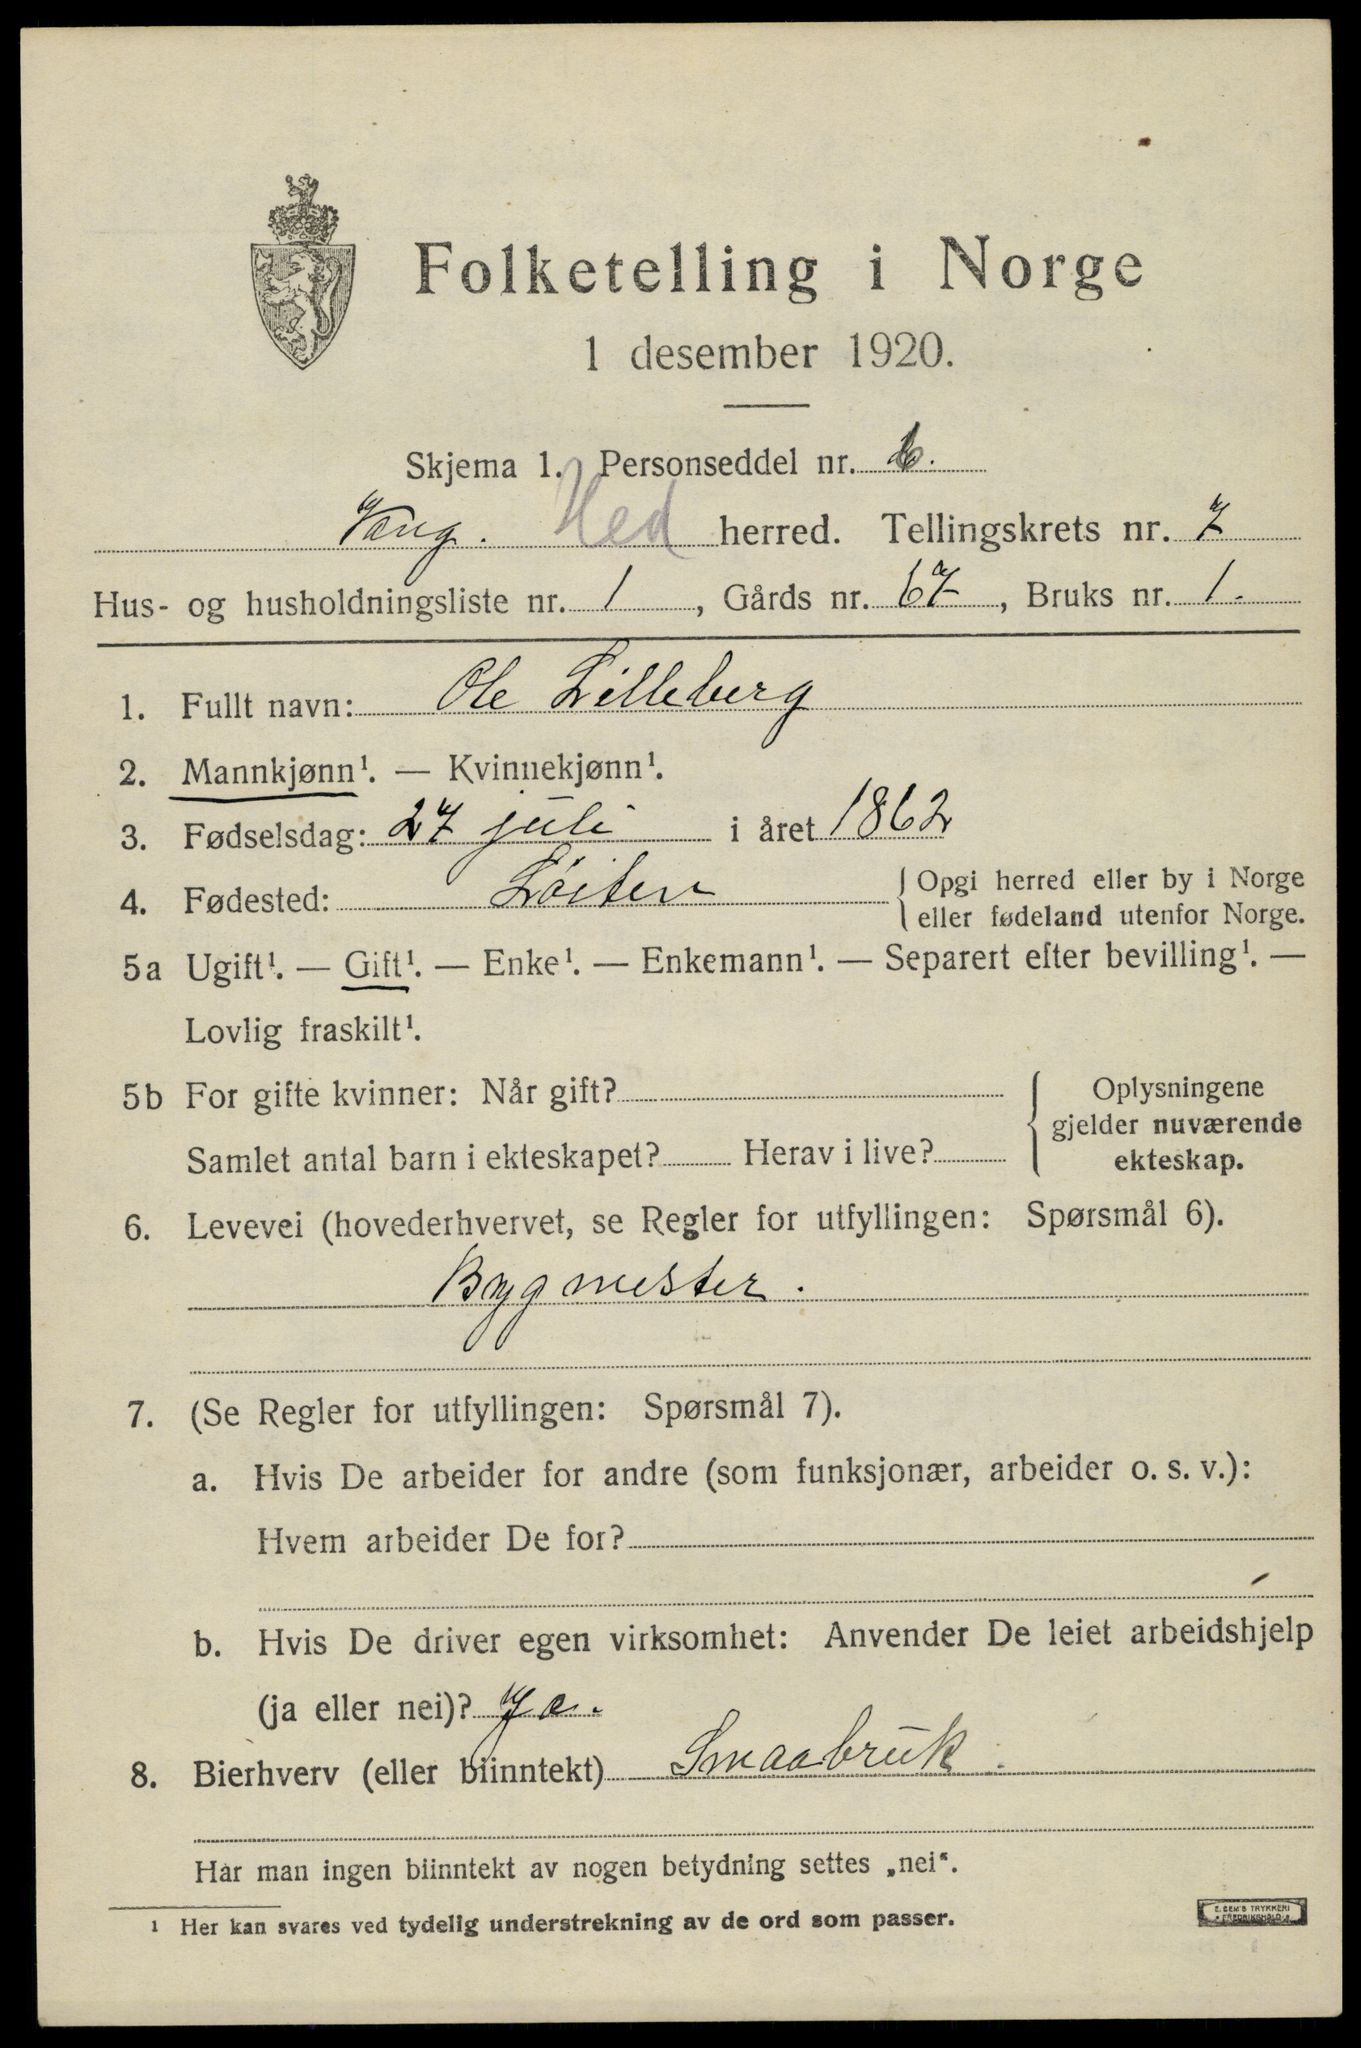 Folketelling i Norge
1 desember 1920.
Skjema 1. Personseddel nr.
Vang. Hed herred. Tellingskrets nr. 7
Hus- og husholdningsliste nr. 1, Gårds nr. 67, Bruks nr. 1.
1. Fullt navn: Ole Lilleberg
2. Mannkjønn¹. — Kvinnekjønn¹.
3. Fødselsdag: 27 juli i året 1862
4. Fødested: Löiten { Opgi herred eller by i Norge
eller fødeland utenfor Norge.
5a Ugift¹. — Gift¹. — Enke¹. — Enkemann¹. — Separert efter bevilling¹. —
Lovlig fraskilt¹.
5b For gifte kvinner: Når gift?
Samlet antal barn i ekteskapet? Herav i live?
{ Oplysningene
gjelder nuværende
ekteskap.
6. Levevei (hovederhvervet, se Regler for utfyllingen: Spørsmål 6).
Bygmester.
7. (Se Regler for utfyllingen: Spørsmål 7).
a. Hvis De arbeider for andre (som funksjonær, arbeider o. s. v.):
Hvem arbeider De for?
b. Hvis De driver egen virksomhet: Anvender De leiet arbeidshjelp
(ja eller nei)? Ja.
8. Bierhverv (eller biinntekt) Smaabruk.
Har man ingen biinntekt av nogen betydning settes „nei“.
¹ Her kan svares ved tydelig understrekning av de ord som passer.
E. SEM'S TRYKKERI
FREDRIKSHALD